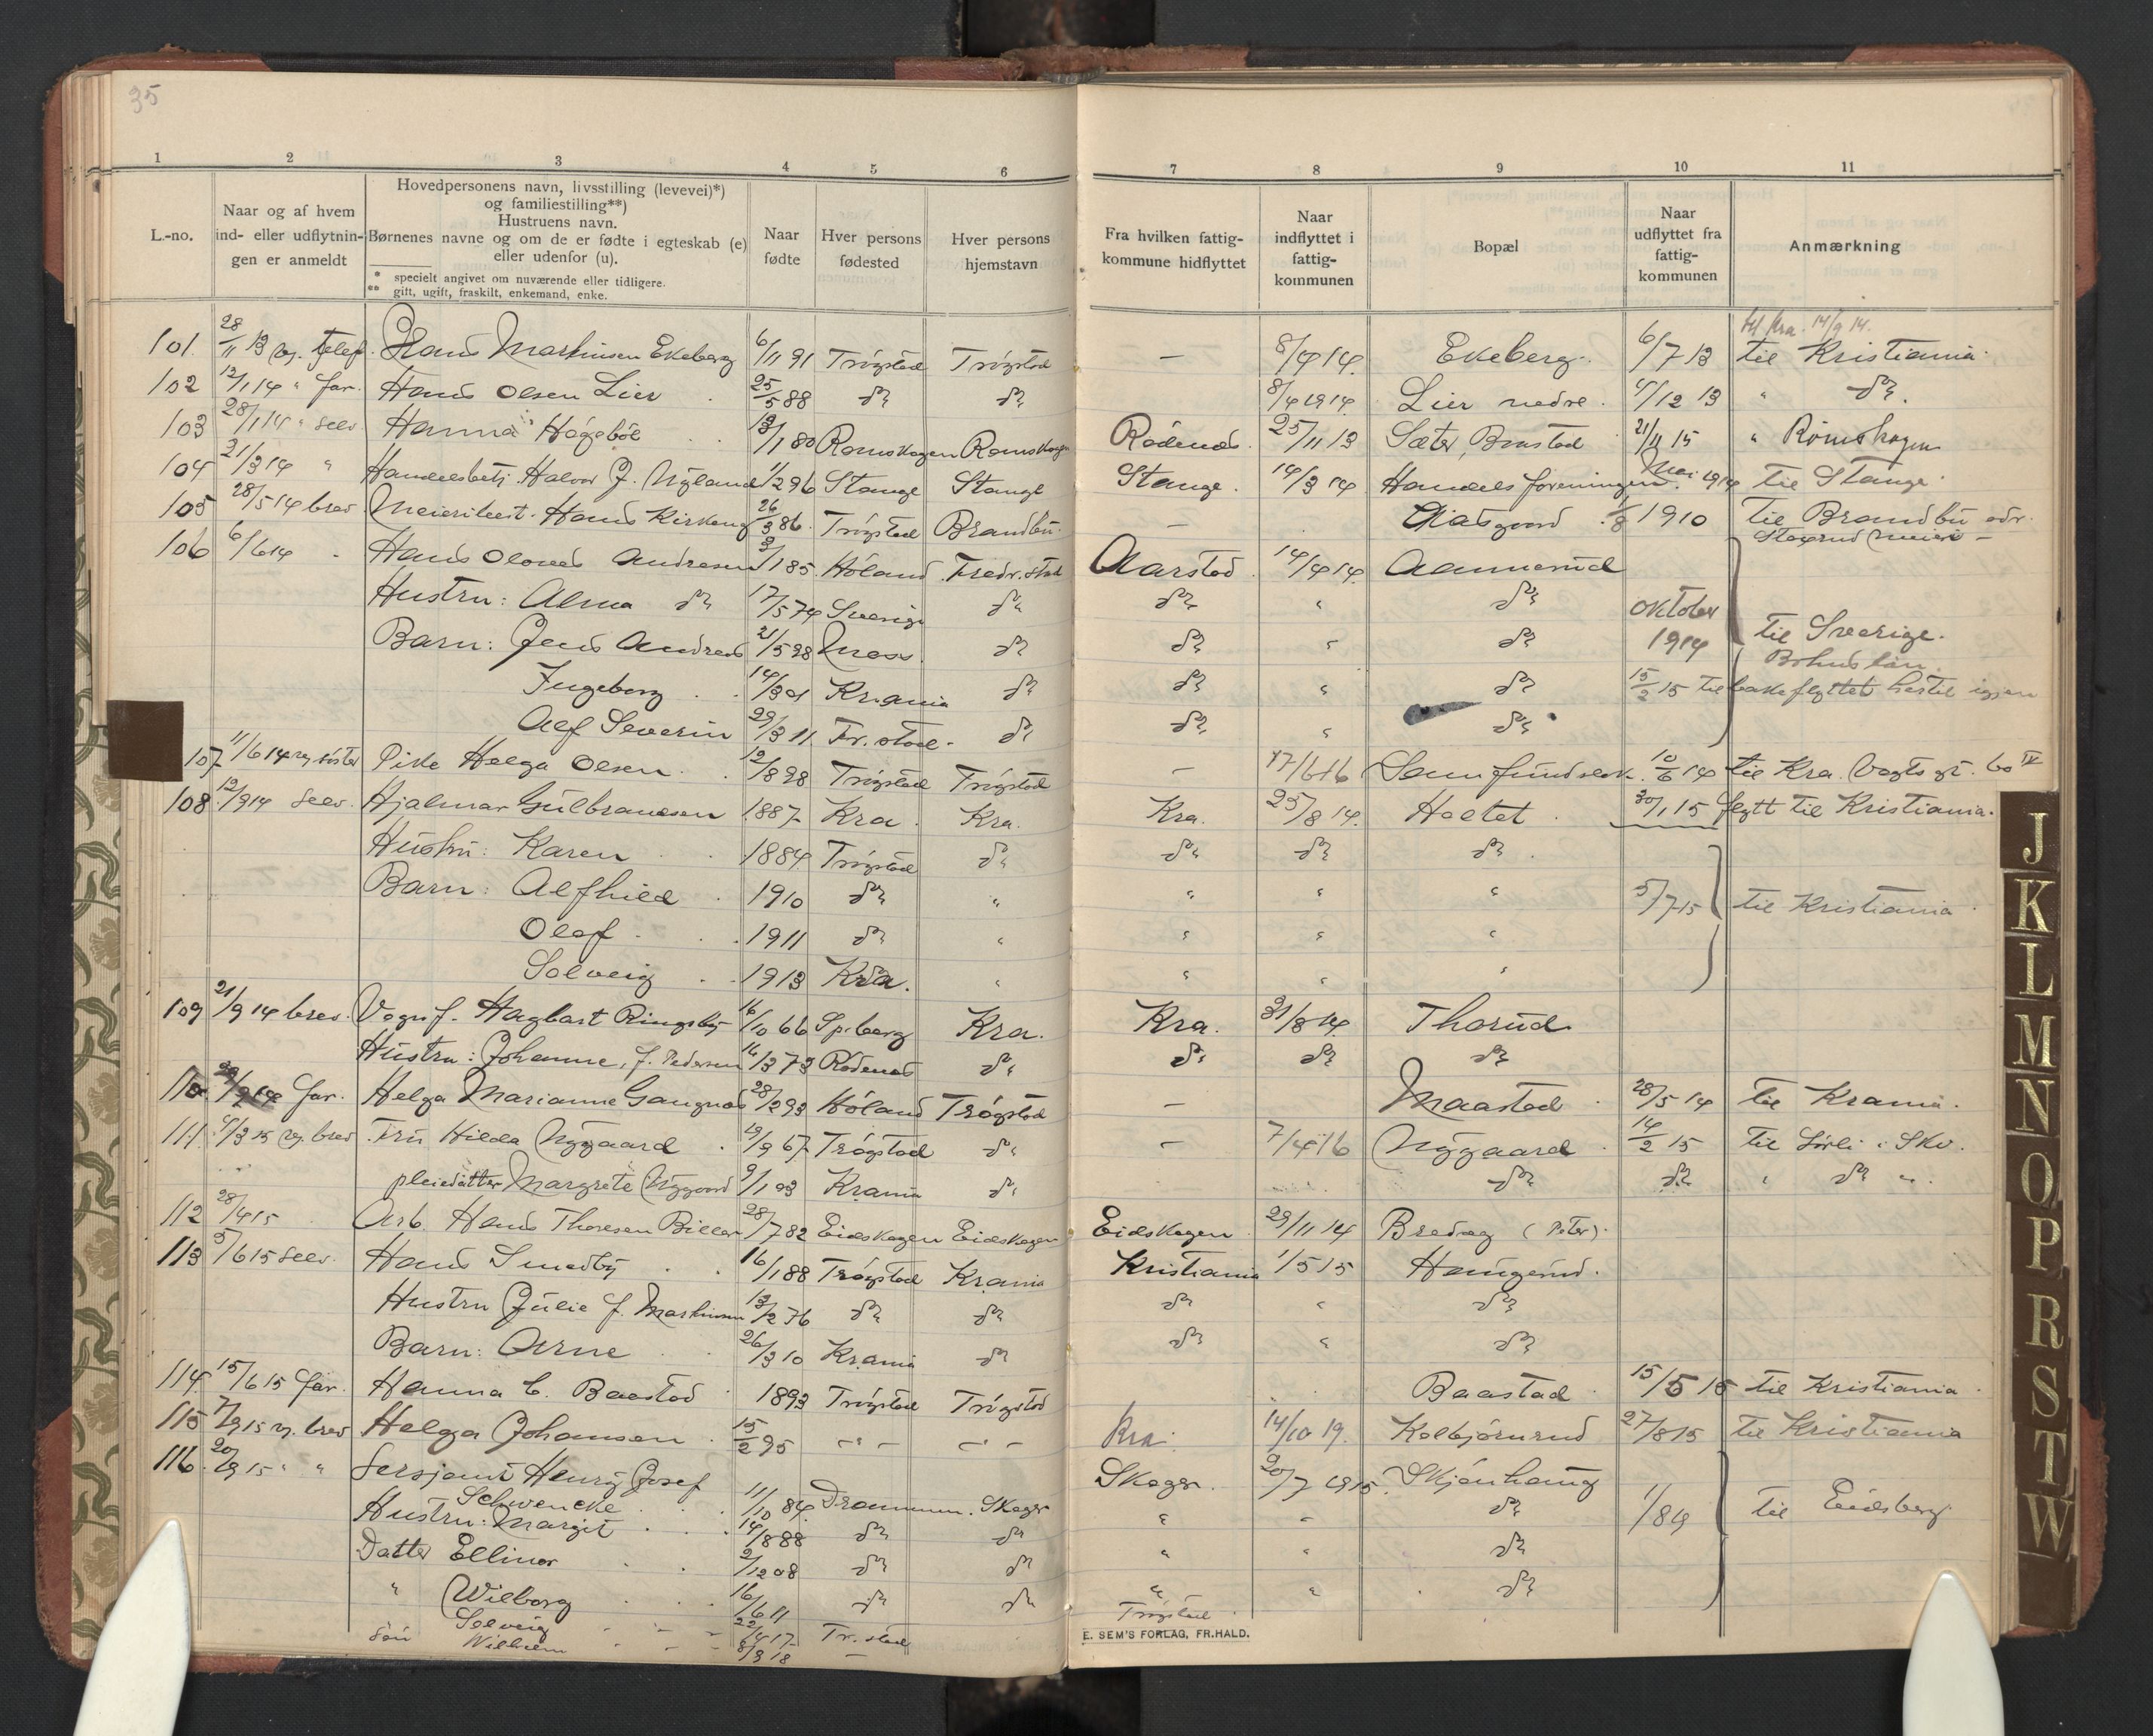 35
1 2 3 4 5 6 7 8 9 10 11
L.-no.
Naar og af hvem
ind- eller udflytnin-
gen er anmeldt
Hovedpersonens navn, livsstilling (levevei)*)
og familiestilling**)
Hustruens navn.
Børnenes navne og om de er fødte i egteskab (e)
eller udenfor (u).
* specielt angivet om nuværende eller tidligere.
** gift, ugift, fraskilt, enkemand, enke.
Naar
fødte
Hver persons
fødested
Hver persons
hjemstavn
Fra hvilken fattig-
kommune hidflyttet
Naar
indflyttet i
fattig-
kommunen
Bopæl
Naar
udflyttet fra
fattig-
kommunen
Anmærkning
til Kra. 14/9 14.
101. 28/11 13 Hans Martinsen Ekeberg 6/11 91 Trögstad Trögstad — 8/4 14. Ekeberg. 6/7 13 til Kristiania.
102 12/1 14 " far. Hans Olsen Lier 25/5 88 do do 8/4 1914. Lier nedre. 4/12 13 " do.
103 28/1 14 " selv. Hanna Högebøl 13/1 80 Romskogen Romskogen Rödenes. 25/11 13 Sæter, Baastad 21/11 15 " Römskogen
104 21/3 14 " Handelsbetj. Halvor J. Nyland 1/2 96 Stange Stange Stange. 14/3 14 Handelsforeningen. Mai 1914 til Stange.
105 28/5 14 brev Meieribest. Hans Kirkeng 26/3 86. Trögstad Brandbu. — 1/8 1910 Til Brandbu
106 6/6 14 Hans Olaves Andresen 3/1 85. Höland. Fredr.stad Aarstad 14/4 14. Aannerud
Hustru: Alma do 17/5 74 Sverige do do " do oktober
Barn: Jens Andreas 21/5 98 Moss do do " do 1914 til Sverige.
Bohuslän.
Ingeborg 14/3 01 Kr.ania do do " do 15/2 15 tilbakeflyttet hertil igjen
Alf Severin 29/3 11 Fr.stad. do do " do
107 11/6 14 søster Pike Helga Olsen. 12/8 98 Trögstad Trögstad — 17/6 16 10/6 14 til Kra. Vogts gt. 60 IV
108. 12/9 14 selv. Hjalmar Gulbrandsen 1887 Kra. Kra. Kra. 25/8 14. Holtet 30/1 15 flytt til Kristiania.
Hustru: Karen 1884 Trögstad do do do do
Barn: Alfhild 1910 do " " " " 5/7 15 til Kristiania
Olaf 1911 do " " " "
Solveig 1913 Kra. " " " "
109 21/9 14 brev. Vognf. Hagbart Ringsby 16/10 66 Sp.berg Kra. Kra. 31/8 14 Thorud
Hustru: Johanne, f. Pedersen 14/3 73 Rödenes do do do do
110. far. Helga Marianne Gangnæs 28/2 93 Höland Trögstad — Maastad 28/5 14 til Krania.
111. 4/3 15 brev Fru Hilda Nygaard 19/9 67 Trögstad do — 7/4 16 Nygaard 14/2 15 til Sørli i Skv.
pleiedatter Margrete Nygaard 9/1 03 Krania do do do " do "
112 28/4 15 Arb. Hans Thoresen Billa 28/7 82 Eidskogen Eidskogen Eidskogen 29/11 14 Bredag (Peter).
113 5/6 15 selv. Hans Smedby 16/1 88 Trögstad Krania Kristiania 1/5 15 Haugerud.
Hustru Julie f. Martinsen 13/2 76 do do do " do
Barn: Arne 26/3 10 Krania do do " do
114 15/6 15 far. Hanna C. Baastad 1893 Trögstad Trögstad Baastad 15/5 15 til Kristiania
115 7/9 15 brev Helga Johansen 15/2 95 — " — — " — Kra. 14/10 19. Kolbjörnrud 27/8 15 til Kristiania
116. 20/9 15 " " Sersjant Henry Josef Skoger. 20/7 1915. Skjönhaug
Schwencke 11/10 84 Drammen. Skoger
Hustru: Margit 14/8 88 do do " " do til Eidsberg.
Datter Ellinor 2/12 08 do do " " do
" Wilborg 16/6 11 do do " " do
Solveig 22/4 17 Tr.stad Trögstad
Sön Wilhelm 8/3 18 —
E. SEM'S FORLAG, FR.HALD.
J
K
L
M
N
O
P
R
S
T
W